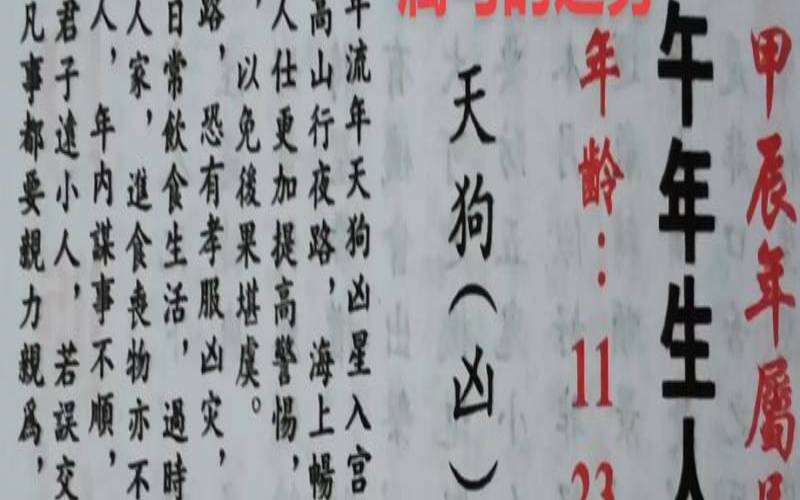 甲辰年屬
午年生人
年齡：11 23
天狗（凶）
年流年天狗凶星入宮
高山行夜路，海上暢
人仕更加提高警惕，
，以免後果堪虞。
路，恐有孝服凶災，
日常飲食生活，過時
人家，進食喪物亦不
人，年內謀事不順，
君子遠小人，若誤交
凡事都要親力親爲，